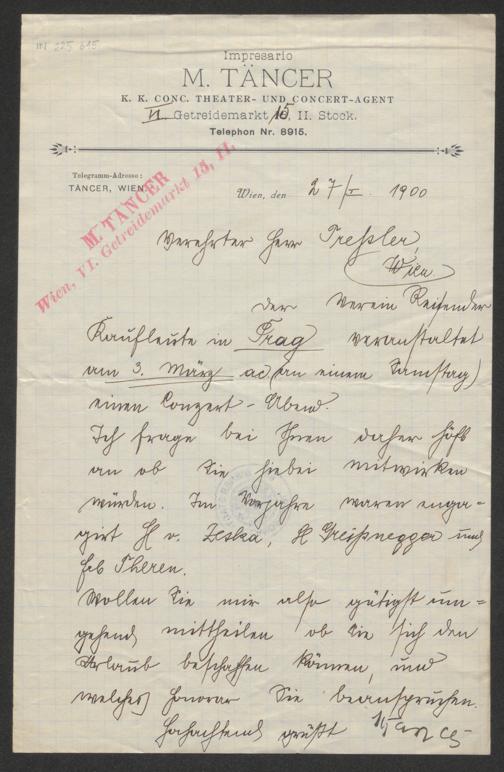 IN 225 615
Impresario
M. TÄNCER
K. K. CONC. THEATER- UND CONCERT-AGENT
VI. Getreidemarkt 15, II. Stock.
Telephon Nr. 8915.
Telegramm-Adresse:
TÄNCER, WIEN.
M. TÄNCER
Wien, VI. Getreidemarkt 15, II.
Wien, den 27/I. 1900
Verehrter Herr Treßler,
Wien
der Verein Reisender
Kaufleute in Prag veranstaltet
am 3. März ac (an einem Samstag)
einen Conzert-Abend.
Ich frage bei Ihnen daher höfl
an ob Sie hiebei mitwirken
würden. Im Vorjahre waren enga-
girt H v. Zeska, H Greißnegger und
Frl Theren.
Wollen Sie mir also gütigst um-
gehend mittheilen ob Sie sich den
Urlaub beschaffen können, und
welches Honorar Sie beanspruchen.
Hochachtend grüßt Täncer